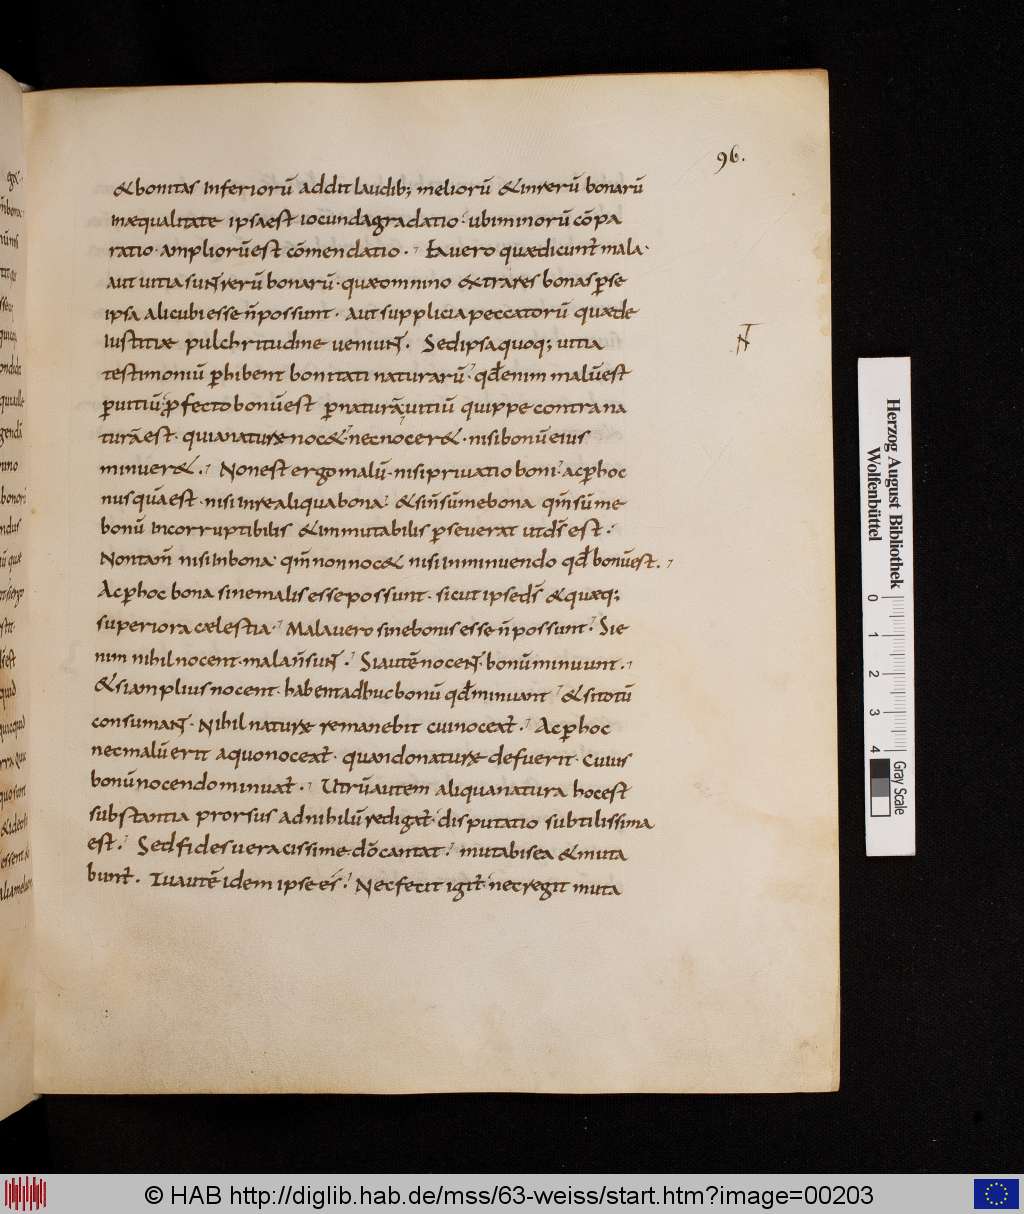 96.
& bonitas Inferiorū addit laudib; meliorū & inrerū bonarū
inæqualitate ipsa est iocunda gradatio. ubi minorū cōpa
ratio. ampliorū est cōmendatio. Ea vero quæ dicunt̄ mala.
aut uitia sunt rerū bonarū. quæ omnino extra res bonas ꝑ se
ipsa alicubi esse n̄ possunt. aut supplicia peccatorū quæ de
Iustitiæ pulchritudine ueniunt. Sed ipsa quoq; uitia
testimoniū ꝑhibent bonitati naturarū. qđ enim malū est
ꝑ uitiū. ꝓfecto bonū est ꝑ naturā, uitiū quippe contra na
turā est. quia naturæ noc&. nec nocer&. nisi bonū eius
minuer&. Non est ergo malū. nisi priuatio boni. ac ꝑ hoc
nusquā est. nisi In re aliqua bona. & si n̄ sūme bona qm̄ sūme
bonū Incorruptibilis & inmutabilis ꝑseuerat ut dс̄ est.
Non tam̄ nisi In bona. qm̄ non noc& nisi In minuendo qđ bonū est.
Ac ꝑ hoc bona sine malis esse possunt. sicut ipse dс̄ & quæq;
superiora cælestia. Mala uero sine bonis esse n̄ possunt. Si e
nim nihil nocent. mala n̄ sunt. Si autē nocent. bonū minuunt.
& si amplius nocent. habent adhuc bonū qđ minuant & si totū
consumant. Nihil naturæ remanebit cui noceat̄. Ac ꝑ hoc
nec malū erit a quo noceat̄. quando natura defuerit. cuius
bonū nocendo minuat̄. Utrū autem aliqua natura hoc est
substantia prorsus ad nihilū redigat̄. disputatio subtilissima
est. Sed fides ueracissime dc̄ cantat. mutabis ea & muta
bunt̄. Tu autē idem ipse es. Nec fecit igit̄. nec regit muta
Herzog August Bibliothek
Wolfenbüttel
0 1 2 3 4
Gray Scale
© HAB http://diglib.hab.de/mss/63-weiss/start.htm?image=00203